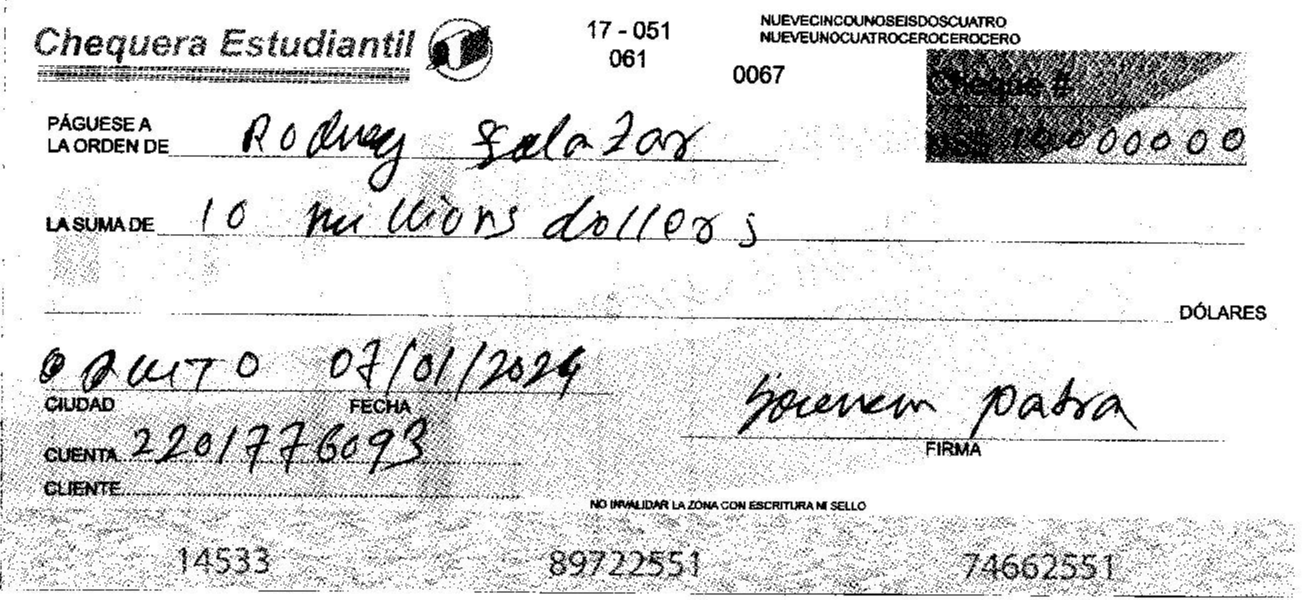 Chequera Estudiantil
17 - 051
061
0067
NUEVECINCOUNOSEISDOSCUATRO
NUEVEUNOCUATROCEROCEROCERO
Cheque #
PÁGUESE A
LA ORDEN DE Rodney Salazar
US$ 10000000
LA SUMA DE 10 millions dollers
DÓLARES
QUITO 07/01/2024
CIUDAD FECHA
patra
FIRMA
CUENTA 2201776093
CLIENTE
NO INVALIDAR LA ZONA CON ESCRITURA NI SELLO
14533 89722551 74662551